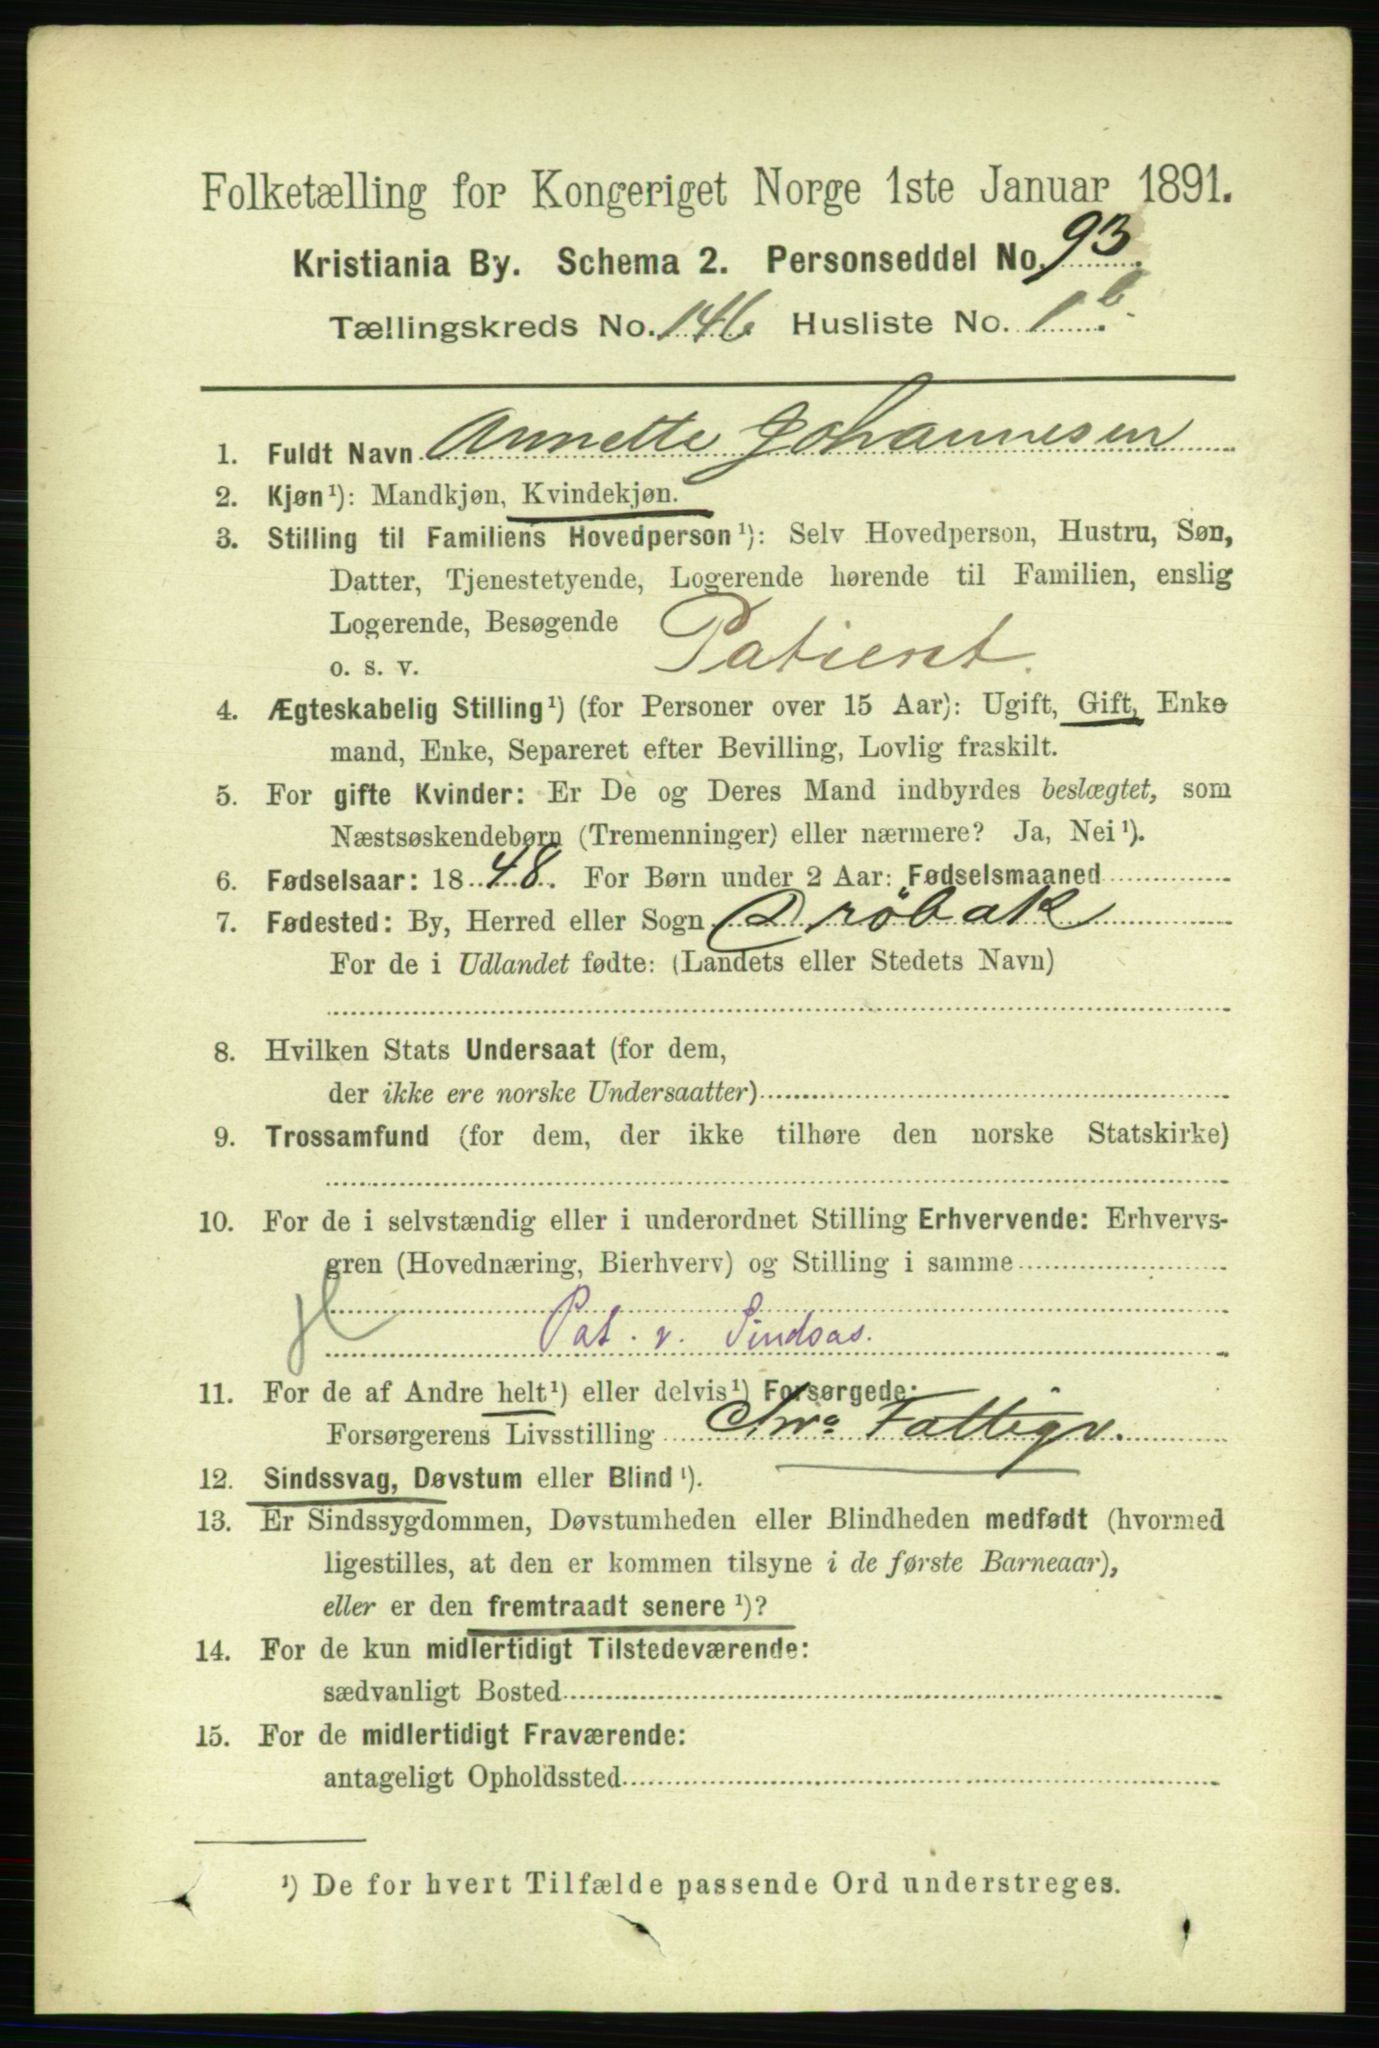 Folketælling for Kongeriget Norge 1ste Januar 1891.
Kristiania By. Schema 2. Personseddel No. 93
Tællingskreds No. 146 Husliste No. 1 b.
1. Fuldt Navn Annette Johannesen
2. Kjøn¹): Mandkjøn, Kvindekjøn.
3. Stilling til Familiens Hovedperson¹): Selv Hovedperson, Hustru, Søn,
Datter, Tjenestetyende, Logerende hørende til Familien, enslig
Logerende, Besøgende
o. s. v. Patient.
4. Ægteskabelig Stilling¹) (for Personer over 15 Aar): Ugift, Gift, Enke
mand, Enke, Separeret efter Bevilling, Lovlig fraskilt.
5. For gifte Kvinder: Er De og Deres Mand indbyrdes beslægtet, som
Næstsøskendebørn (Tremenninger) eller nærmere? Ja, Nei¹).
6. Fødselsaar: 1848. For Børn under 2 Aar: Fødselsmaaned
7. Fødested: By, Herred eller Sogn Dröbak
For de i Udlandet fødte: (Landets eller Stedets Navn)
8. Hvilken Stats Undersaat (for dem,
der ikke ere norske Undersaatter)
9. Trossamfund (for dem, der ikke tilhøre den norske Statskirke)
10. For de i selvstændig eller i underordnet Stilling Erhvervende: Erhvervs-
gren (Hovednæring, Bierhverv) og Stilling i samme
Pat. v. Sindsas.
11. For de af Andre helt¹) eller delvis¹) Forsørgede:
Forsørgerens Livsstilling Fattigv.
12. Sindssvag, Døvstum eller Blind¹).
13. Er Sindssygdommen, Døvstumheden eller Blindheden medfødt (hvormed
ligestilles, at den er kommen tilsyne i de første Barneaar),
eller er den fremtraadt senere¹)?
14. For de kun midlertidigt Tilstedeværende:
sædvanligt Bosted
15. For de midlertidigt Fraværende:
antageligt Opholdssted
¹) De for hvert Tilfælde passende Ord understreges.